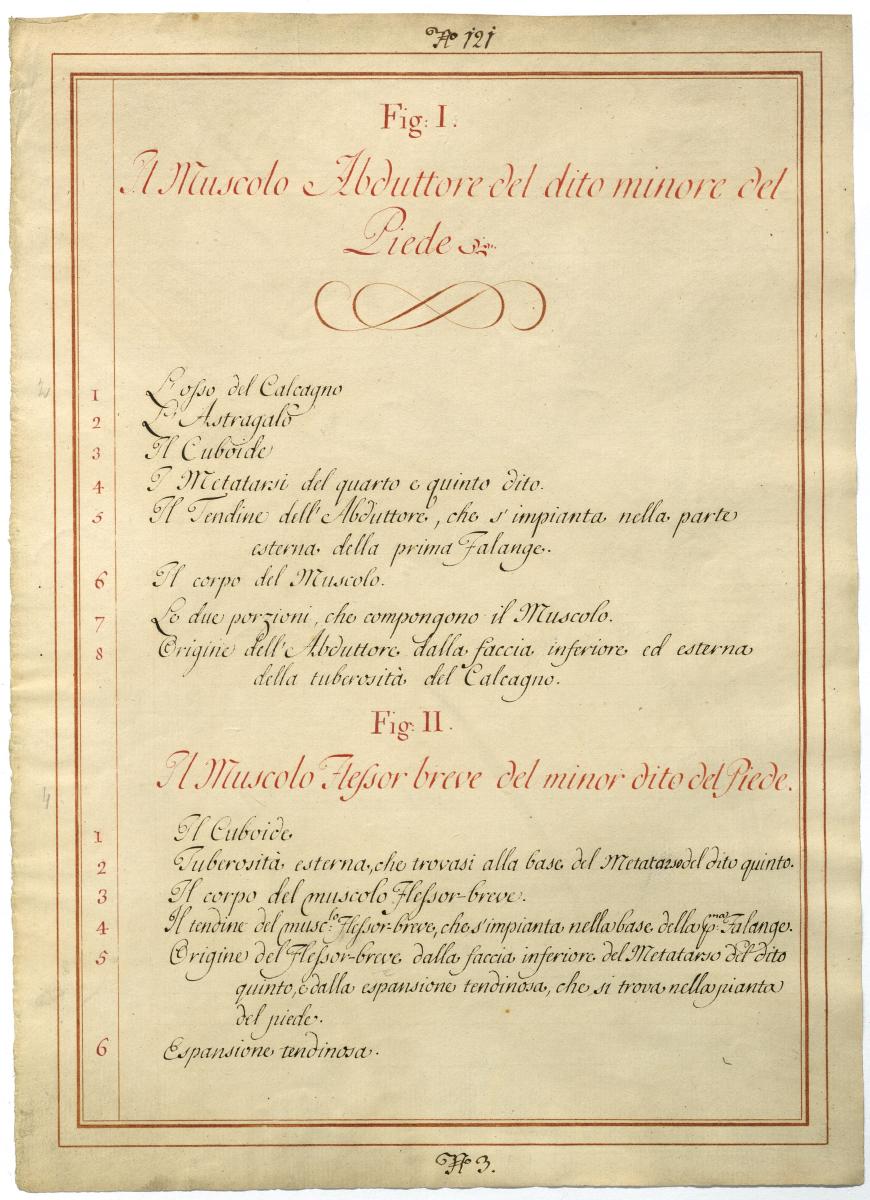 Nº 121
Fig: I.
Il Muscolo Abduttore del dito minore del
Piede
1 L'osso del Calcagno
2 L'Astragalo
3 Il Cuboide
4 I Metatarsi del quarto e quinto dito.
5 Il Tendine dell'Abduttore, che s'impianta nella parte
esterna della prima Falange.
6 Il corpo del Muscolo.
7 Le due porzioni, che compongono il Muscolo.
8 Origine dell'Abduttore dalla faccia inferiore ed esterna
della tuberosità del Calcagno.
Fig: II.
Il Muscolo Flessor breve del minor dito del Piede.
1 Il Cuboide
2 Tuberosità esterna, che trovasi alla base del Metatarso del dito quinto.
3 Il corpo del muscolo Flessor-breve.
4 Il tendine del musc:lo Flessor-breve, che s'impianta nella base della p:ma Falange.
5 Origine del Flessor-breve dalla faccia inferiore del Metatarso del dito
quinto, e dalla espansione tendinosa, che si trova nella pianta
del piede.
6 Espansione tendinosa.
Nº 3.